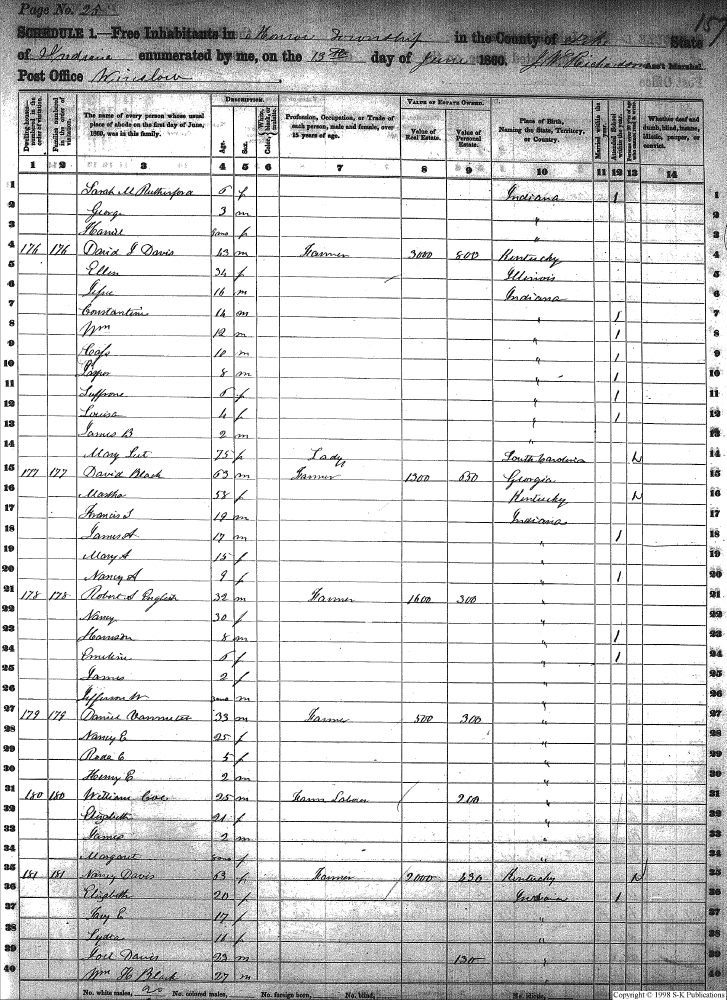 Page No. 25
159
SCHEDULE 1.—Free Inhabitants in Monroe Township in the County of Pike State
of Indiana enumerated by me, on the 13th day of June 1860. J. W. Richardson Ass't Marshal.
Post Office Winslow
Dwelling-houses—numbered in the order of visitation. Families numbered in the order of visitation. The name of every person whose usual place of abode on the first day of June, 1860, was in this family. DESCRIPTION. Age. Sex. Color, White, black, or mulatto. Profession, Occupation, or Trade of each person, male and female, over 15 years of age. VALUE OF ESTATE OWNED. Value of Real Estate. Value of Personal Estate. Place of Birth, Naming the State, Territory, or Country. Married within the year. Attended School within the year. Whether deaf and dumb, blind, insane, idiotic, pauper, or convict.
1 2 3 4 5 6 7 8 9 10 11 12 13 14
1 Sarah M Rutherford 6 f Indiana / 1
2 George 3 m " 2
3 f " 3
4 176 176 David J Davis 43 m Farmer 3000 800 Kentucky 4
5 Ellen 34 f Illinois 5
6 16 m Indiana 6
7 Constantine 14 m " / 7
8 Wm 12 m " / 8
9 10 m " / 9
10 8 m " / 10
11 6 f " / 11
12 Louisa 4 f " / 12
13 James B 2 m " 13
14 Mary 75 f Lady South Carolina 14
15 177 177 David Black 63 m Farmer 1300 650 Georgia 15
16 Martha 58 f Kentucky 16
17 Francis 19 m Indiana 17
18 James A 17 m " / 18
19 Mary A 15 f " 19
20 Nancy A 9 f " / 20
21 178 178 Robert S English 32 m Farmer 1600 300 " 21
22 Nancy 30 f " 22
23 Harrison 8 m " / 23
24 Emeline 6 f " / 24
25 James 2 f " 25
26 Jefferson W m " 26
27 179 179 Daniel Vanmeter 33 m Farmer 500 300 " 27
28 Nancy E 25 f " 28
29 Roda E 5 f " 29
30 Henry E 2 m " 30
31 180 180 William Coe 25 m Farm Laborer 200 " 31
32 Elizabeth 21 f " 32
33 James 2 m " 33
34 Margaret f " 34
35 181 181 Nancy Davis 63 f Farmer 2000 430 Kentucky 35
36 Elizabeth 20 f Indiana / 36
37 17 f 37
38 Lyda 16 f " 38
39 Joel Davis 23 m 130 39
40 Wm H Black 27 m 40
No. white males, 20 No. colored males, No. foreign born, No. blind, No. idiotic,
Copyright © 1998 S-K Publications